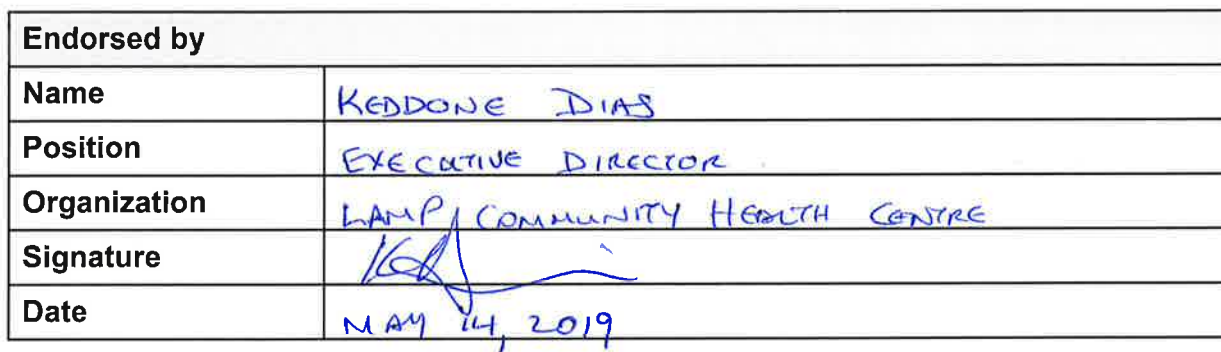 Endorsed by
Name KEDDONE DIAS
Position EXECUTIVE DIRECTOR
Organization LAMP COMMUNITY HEALTH CENTRE
Signature
Date MAY 14, 2019